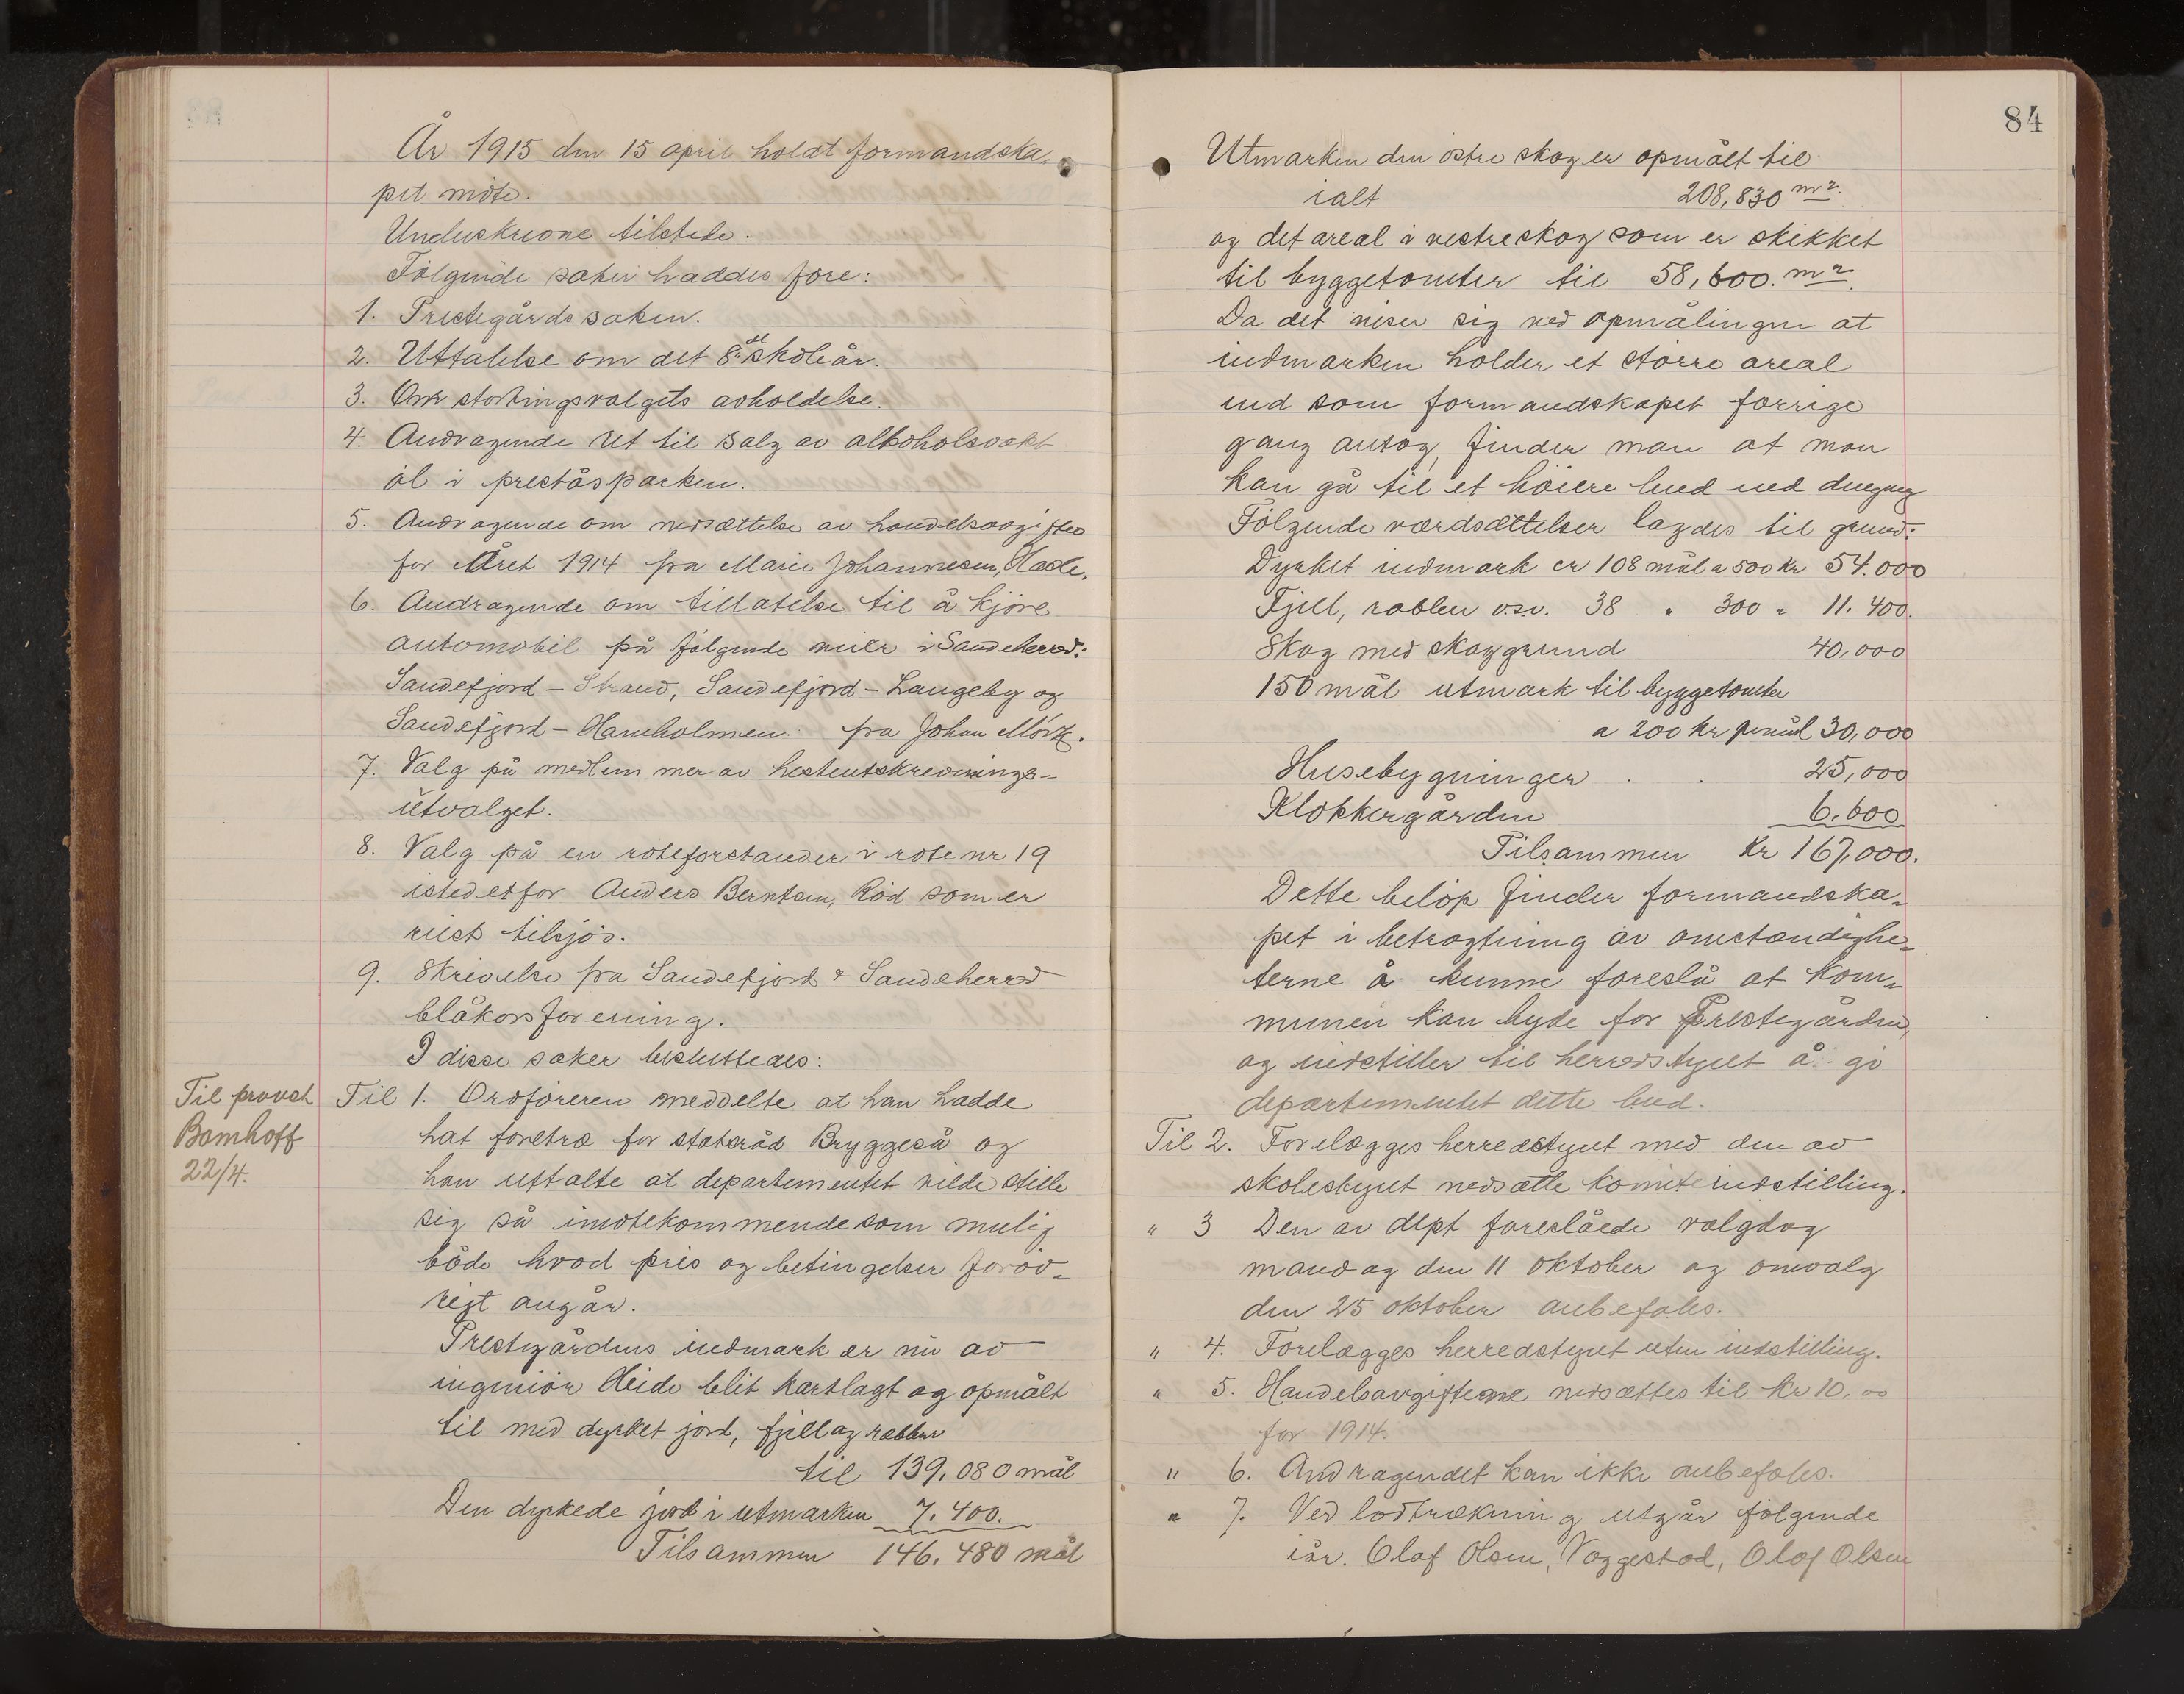 År 1915 den 15 april holdt formandska-
pet møte.
Underskrevne tilstede.
Følgende saker haddes fore:
1. Prestegårdssaken.
2. Uttalelse om det 8de skoleår.
3. Om stortingsvalgets avholdelse.
4. Andragende ret til salg av alkoholsvakt
øl i preståsparken.
5. Andragende om nedsættelse av handelsavgiften
for Året 1914 fra Marie Johannesen, Hasle.
6. Andragende om tillatelse til å kjøre
automobil på følgende veier i Sandeherred:
Sandefjord - Strand, Sandefjord - Langeby og
Sandefjord - Hamholmen. fra Johan Mørk.
7. Valg på medlemmer av hesteutskrevnings-
utvalget.
8. Valg på en roteforstander i rote nr 19
istedetfor Anders Berntsen, Rød som er
reist tilsjøs.
9. Skrivelse fra Sandefjord & Sandeherred
blåkorsforening.
I disse saker besluttedes:
Til provst
Bomhoff
22/4.
Til 1. Ordføreren meddelte at han hadde
hat foretræ for statsråd Bryggeså og
han uttalte at departementet vilde stille
sig så imøtekommende som mulig
både hvad pris og betingelser forøv-
rigt angår.
Prestegårdens indmark er nu av
ingeniør Heide blit kartlagt og opmålt
til med dyrket jord, fjell og rabber
til 139,080 mål
Den dyrkede jord i utmarken 7.400.
Tilsammen 146,480 mål
84
Utmarken den østre skog er opmålt til
ialt 208,830 m2.
og det areal i vestreskog som er skikket
til byggetomter til 58,600. m2.
Da det viser sig ved opmålingen at
indmarken holder et større areal
end som formandskapet forrige
gang antog, finder man at man
kan gå til et høiere bud end dengang
Følgende værdsættelser lagdes til grund:
Dyrket indmark er 108 mål a 500 kr 54.000
Fjell, rabber o.s.v. 38 " 300 " 11.400.
Skog med skoggrund 40,000
150 mål utmark til byggetomter
a 200 kr pr mål 30,000
Husebygninger . . 25,000
Klokkergården 6.600
Tilsammen Kr 167,000.
Dette beløp finder formandska-
pet i betragtning av omstændighe-
terne å kunne foreslå at kom-
munen kan byde for Prestegården,
og indstiller til herredstyret å gi
departementet dette bud.
Til 2. Forelægges herredstyret med den av
skolestyret nedsatte komite indstilling.
" 3 Den av dept foreslåede valgdag
mandag den 11 oktober og omvalg
den 25 oktober anbefales.
" 4. Forelægges herredstyret uten indstilling.
" 5. Handelsavgifterne nedsættes til kr 10,00
for 1914.
" 6. Andragendet kan ikke anbefales.
" 7. Ved lodtrækning utgår følgende
iår. Olaf Olsen, Voggestad, Olaf Olsen